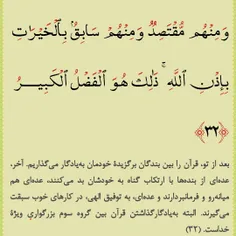 وَمِنْهُم مُّقْتَصِدٌ وَمِنْهُمْ سَابِقٌ بِالْخَيْرَاتِ
بِإِذْنِ اللَّهِ ۚ ذَٰلِكَ هُوَ الْفَضْلُ الْكَبِيرُ
﴿٣٢﴾
بعد از تو، قرآن را بین بندگان برگزیدهٔ خودمان به‌یادگار می‌گذاریم. آخر،
عده‌ای از بنده‌ها با ارتکاب گناه به خودشان بد می‌کنند، عده‌ای هم
میانه‌رو و فرمانبردارند و عده‌ای، به توفیق الهی، در کارهای خوب سبقت
می‌گیرند. البته به‌یادگارگذاشتن قرآن بین گروه سوم بزرگواریِ ویژهٔ
خداست. (۳۲)